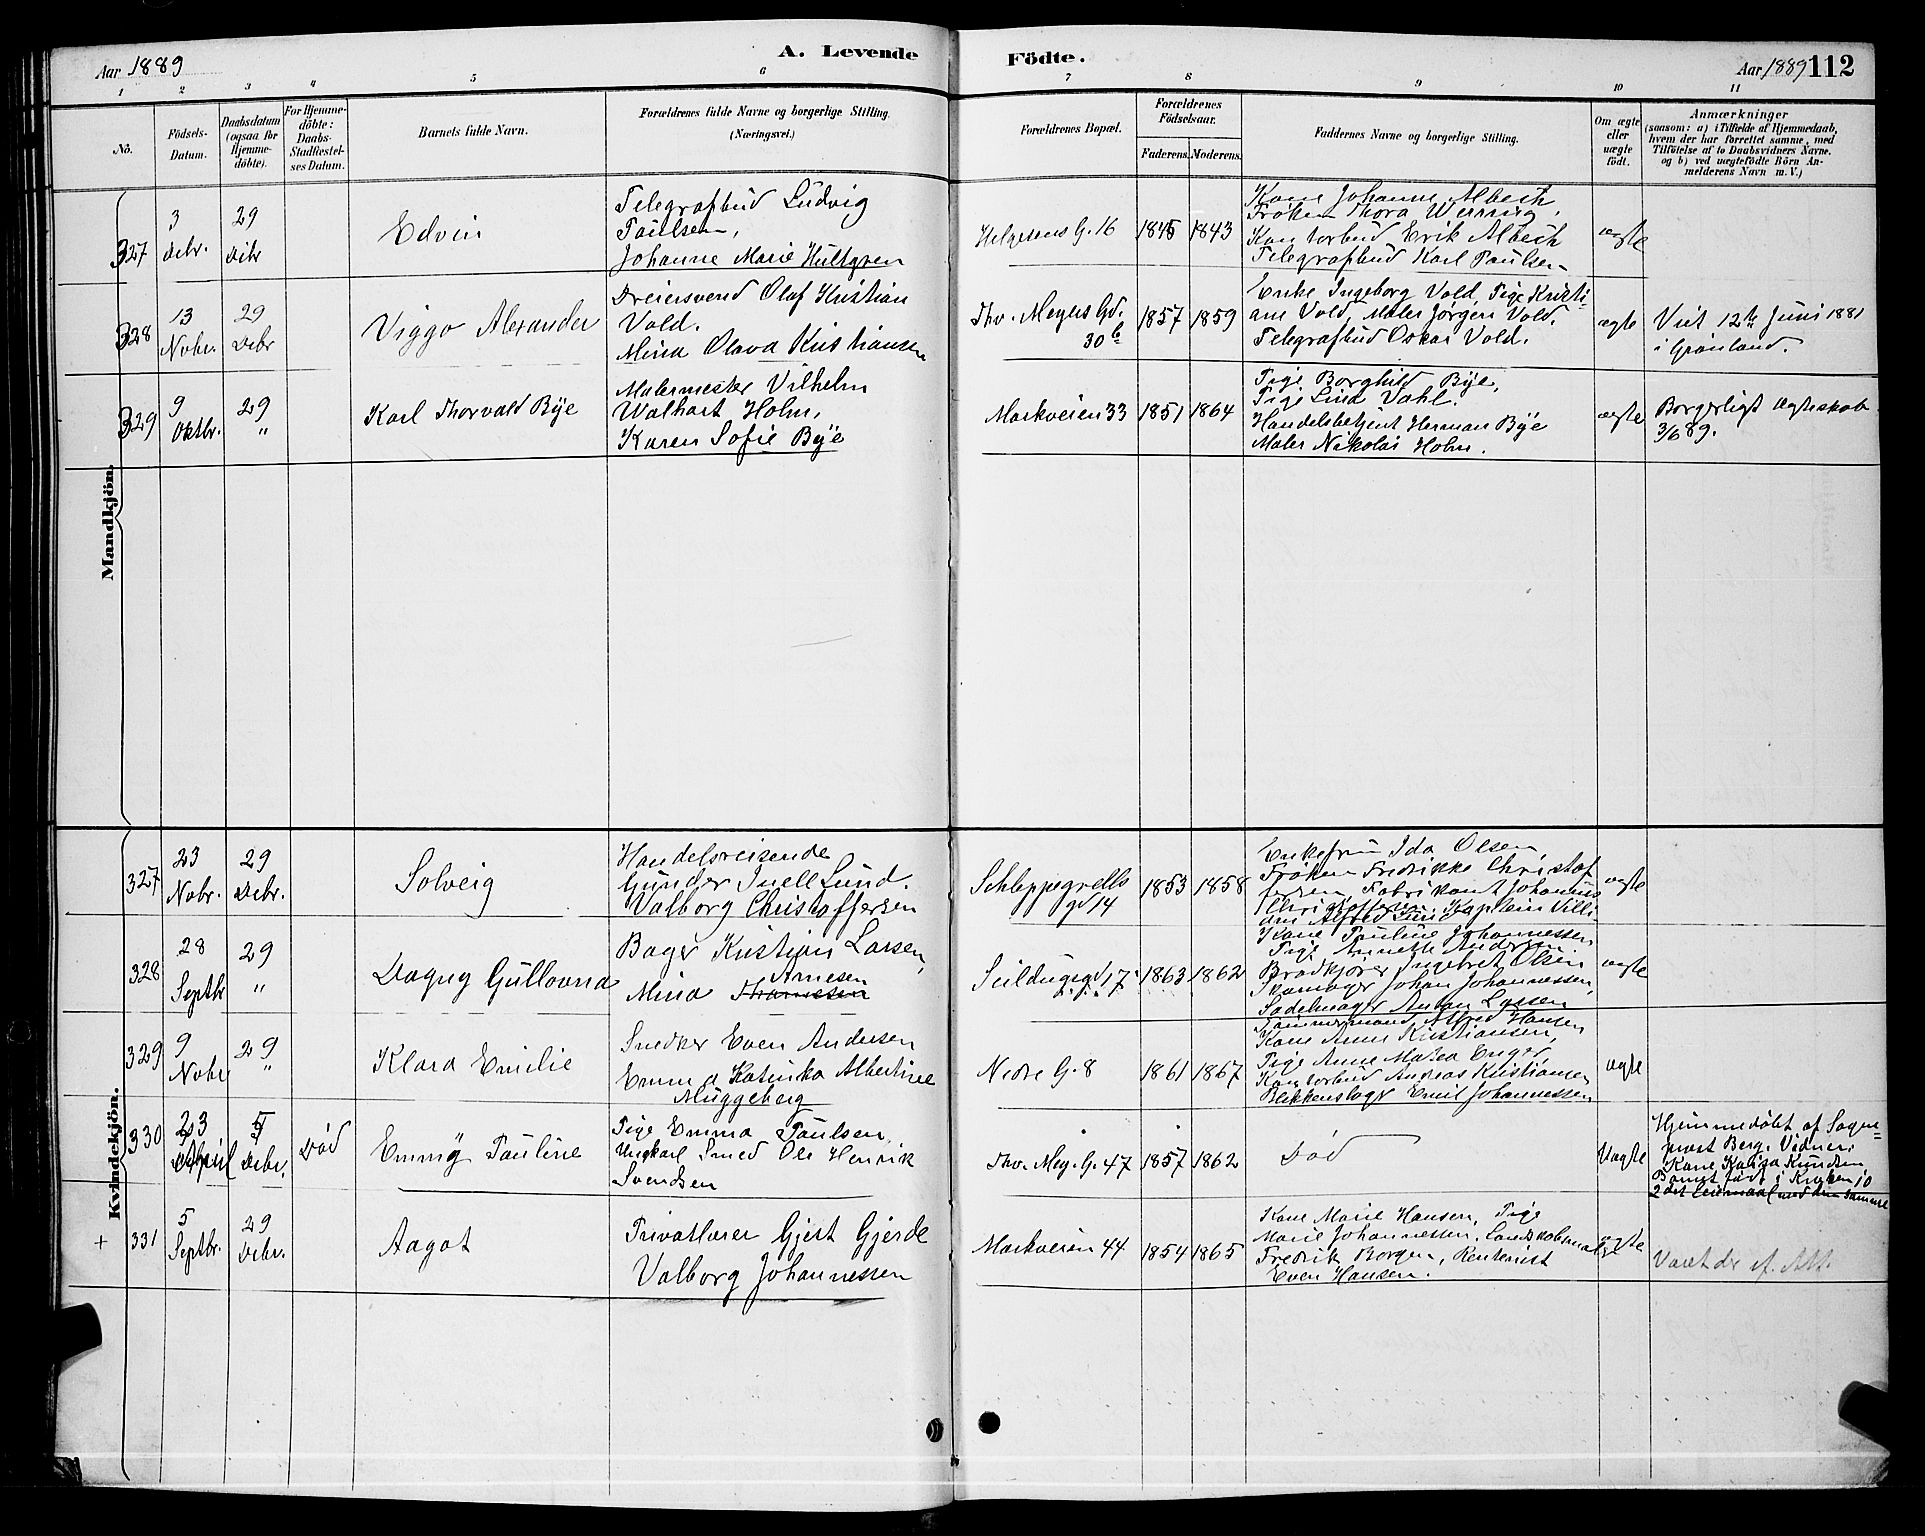 Aar 1889
A. Levende
Födte.
Aar 1889 112
1 2 3 4 5 6 7 8 9 10 11
No.
Födsels-
Datum.
Daabsdatum
(ogsaa for
Hjemme-
döbte).
For Hjemme-
döbte:
Daabs-
Stadfæstel-
ses Datum.
Barnets fulde Navn.
Forældrenes fulde Navne og borgerlige Stilling.
(Næringsvei.)
Forældrenes Bopæl.
Forældrenes
Födselsaar.
Faderens. Moderens.
Faddernes Navne og borgerlige Stilling.
Om ægte
eller
uægte
födt.
Anmærkninger
(saasom: a) i Tilfælde af Hjemmedaab,
hvem der har forrettet samme, med
Tilföielse af to Daabsvidners Navne.
og b) ved uægtefödte Börn An-
melderens Navn m. V.)
Mandkjön.
327
3
Debr.
29
Debr
Edvin
Telegrafbud Ludvig
Paulsen,
Johanne Marie Hultgren
Helgesens G. 16
1845 1843
Kone Johanne Albech
Frøken Thora Werring,
Kontorbud Erik Albech
Telegrafbud Karl Paulsen
ægte
328
13
Nobr.
29
Debr
Viggo Alexander
Dreiersvend Olaf Kristian
Vold.
Mina Olava Kristiansen
Thv. Meyers Gd.
30 b
1857 1859
Enke Ingeborg Vold, Pige Kristi-
ane Vold, Maler Jørgen Vold.
Telegrafbud Oskar Vold.
ægte
Viet 12te Juni 1881
i Grønland.
329
9
Oktbr.
29
"
Karl Thorvald Bye
Malermester Vilhelm
Walhart Holm,
Karen Sofie Bye
Markveien 33
1851 1864
Pige Borghild Bye,
Pige Lina Vahl.
Handelsbetjent Herman Bye
Maler Nikolai Holm.
ægte
Borgerligt Ægteskab
3/6 89.
Kvindekjön.
327
23
Nobr.
29
Debr.
Solveig
Handelsreisende
Gunder Juell Lund.
Valborg Christoffersen
Schleppegrells
gd 14
1853 1858
Enkefru Ida Olsen,
Frøken Fredrikke Christof
fersen Fabrikant Johannes
Christoffersen, Kaptein Villi
am Alfred Lund
ægte
328
28
Septbr
29
"
Dagny Gullovna
Bager Kristian Larsen,
Arnesen
Mina
Seildugsgd 17
1863 1862
Kone Pauline Johannessen
Pige Annette Andersen
Brødkjører Ingebret Olsen
Skomager Johan Johannessen,
Sadelmager Anton Larsen
ægte
329
9
Nobr
29
"
Klara Emilie
Snedker Even Andersen
Emma Katinka Albertine
Muggeberg
Nedre G. 8
1861 1867
Tømmermand Alfred Hansen
Kone Anne Kristiansen,
Pige Anne Matea Enger,
Kontorbud Andreas Kristiansen
Blikkenslager Emil Johannessen
ægte
330
23
April
5
Debr.
Død
Emmy Pauline
Pige Emma Paulsen,
Ungkarl Smed Ole Henrik
Svendsen
Thv. Mey. G. 47
1857 1862
Død
Uægte
Hjemmedøbt af Sogne=
prest Berg. Vidner:
Kone Kaisa Knudsen,
Barnet født i Krogken 10
2det Leiermaal med den samme
+
331
5
Septbr.
29
Debr.
Aagot
Privatlærer Gjert Gjerde
Valborg Johannessen
Markveien 44
1854 1865
Kone Marie Hansen, Pige
Marie Johannessen, Landskabsmaler
Fredrik Borgen, Rentenist
Even Hansen.
ægte